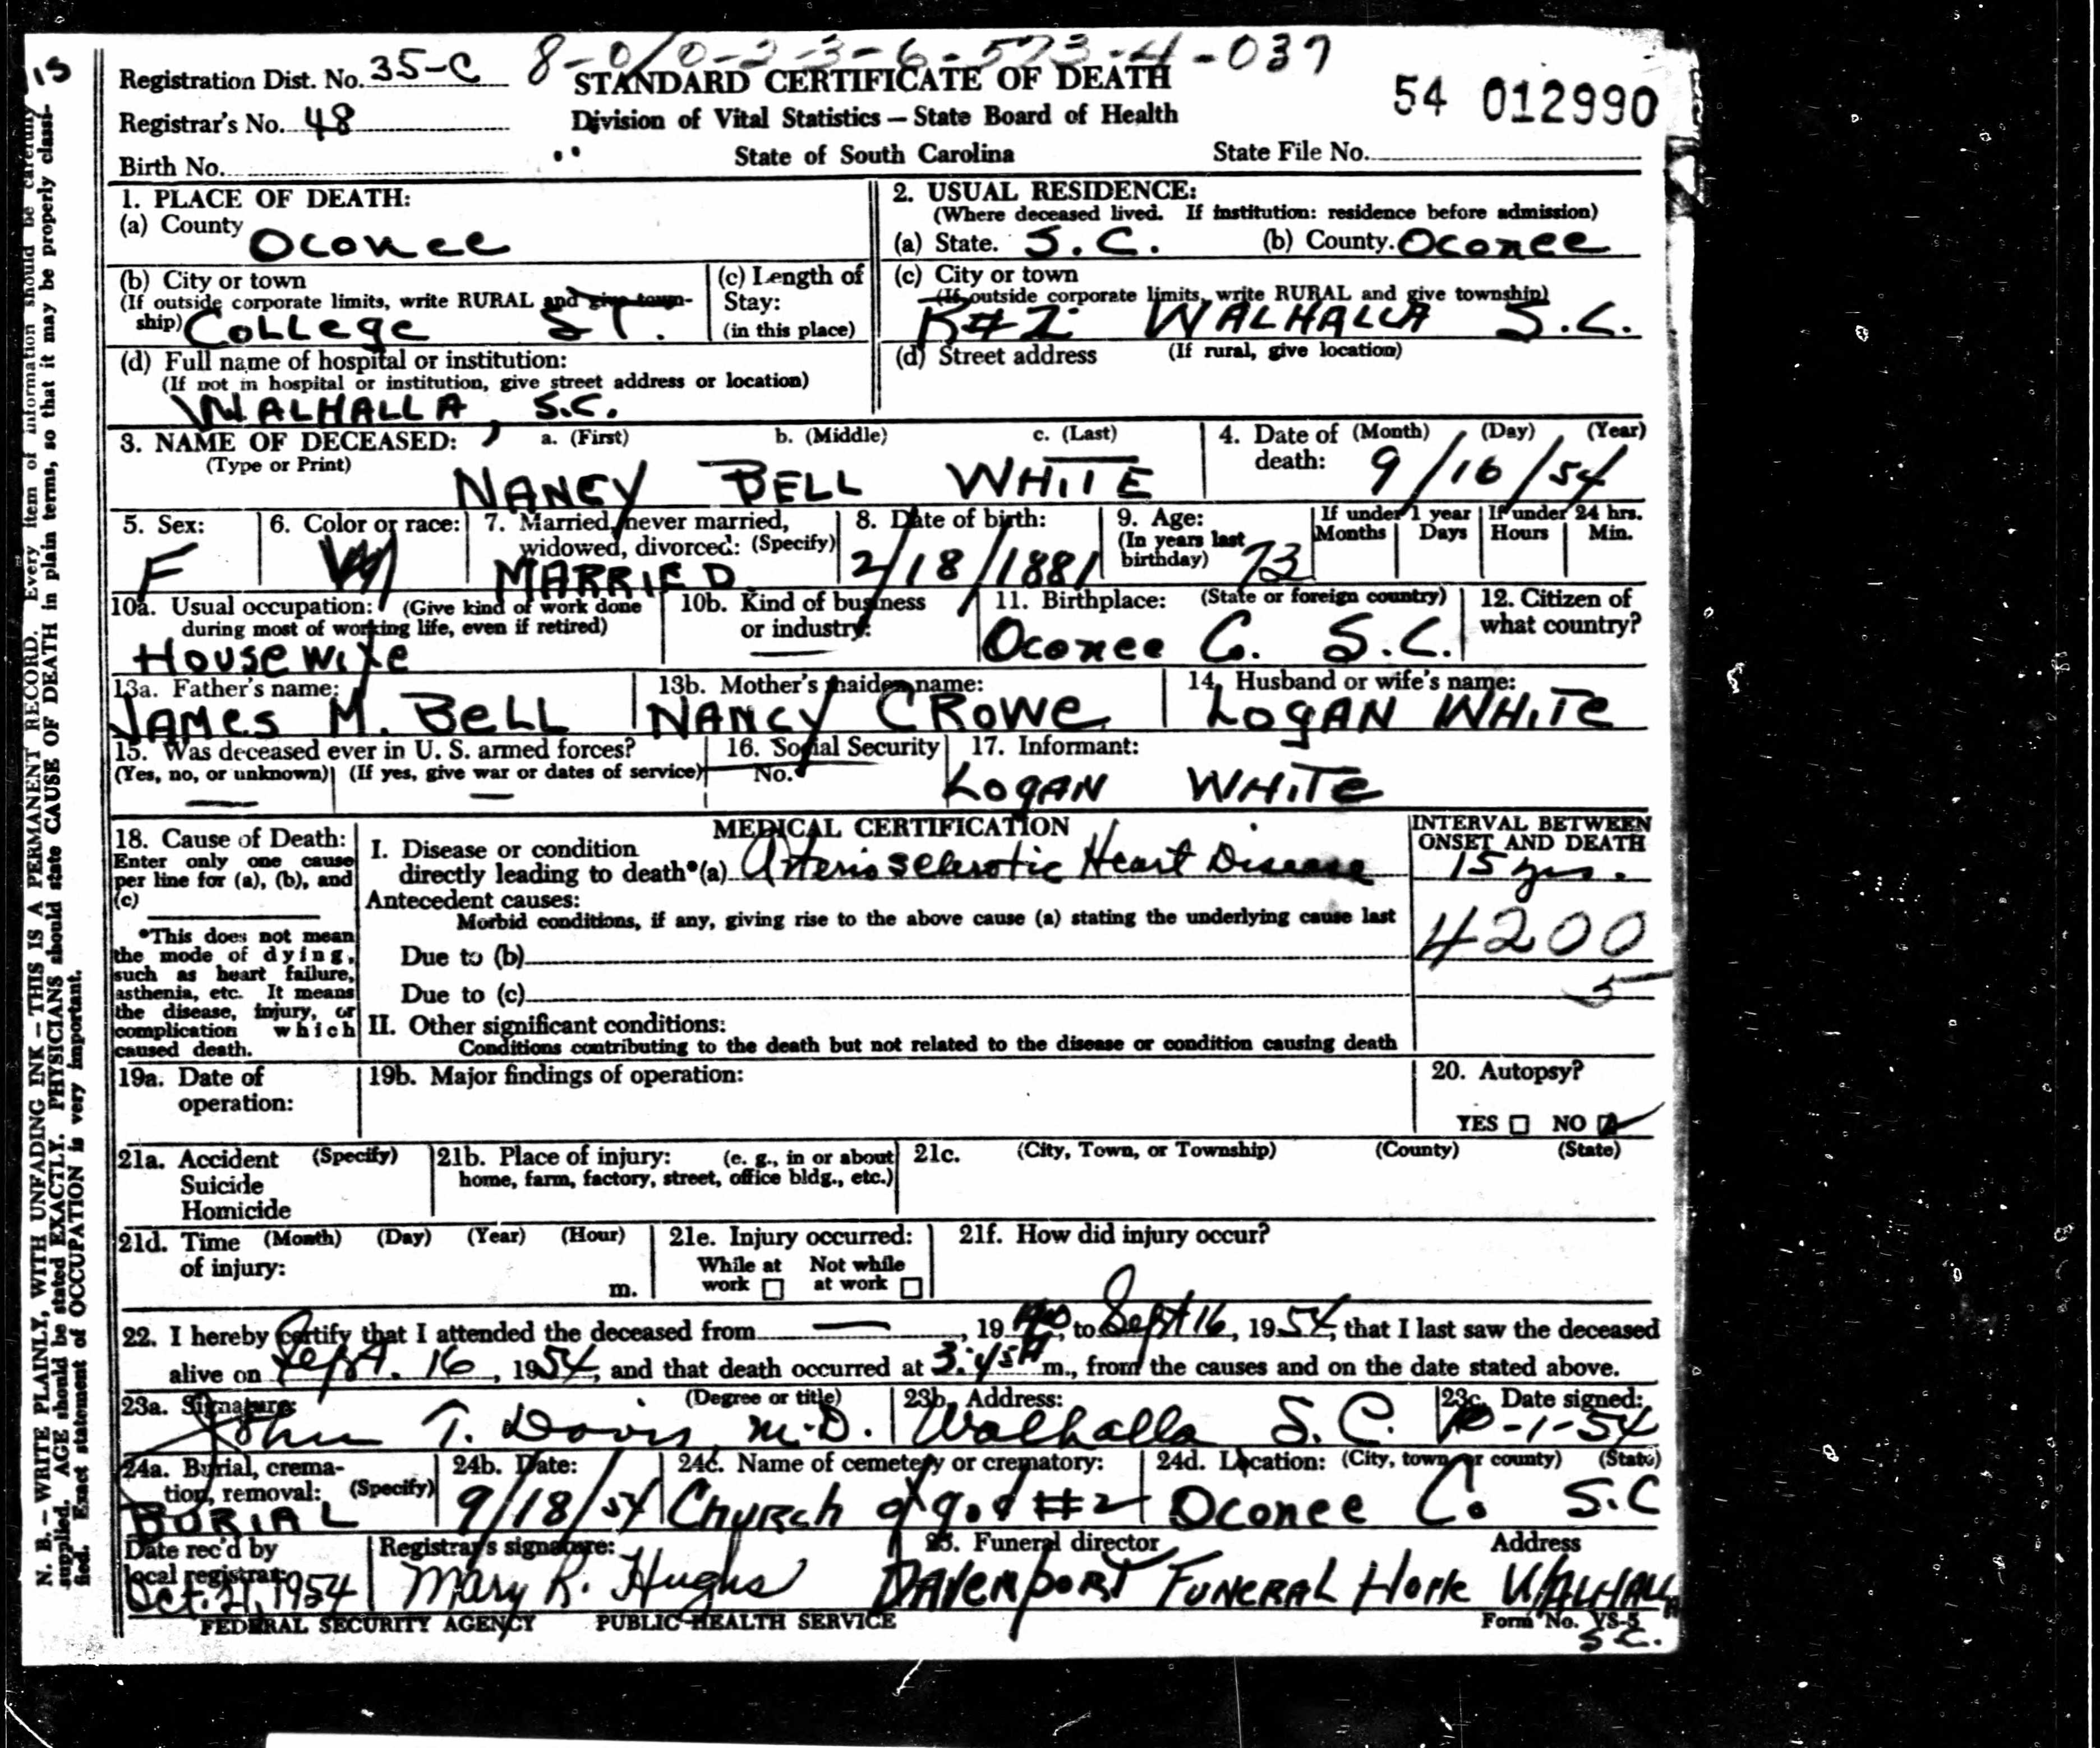 15
Registration Dist. No. 35-C 8-0/0-2-3-6-573-4-037
STANDARD CERTIFICATE OF DEATH
54 012990
Registrar's No. 48
Division of Vital Statistics — State Board of Health
Birth No.
State of South Carolina
State File No.
1. PLACE OF DEATH:
(a) County
Oconee
2. USUAL RESIDENCE:
(Where deceased lived. If institution: residence before admission)
(a) State. S.C. (b) County. Oconee
(b) City or town
(If outside corporate limits, write RURAL and give town-
ship) College ST.
(c) Length of
Stay:
(in this place)
(c) City or town
(If outside corporate limits, write RURAL and give township)
R#2 WALHALLA S.C.
(d) Full name of hospital or institution:
(If not in hospital or institution, give street address or location)
WALHALLA, S.C.
(d) Street address (If rural, give location)
3. NAME OF DECEASED: a. (First) b. (Middle) c. (Last)
(Type or Print)
NANCY BELL WHITE
4. Date of (Month) (Day) (Year)
death: 9/16/54
5. Sex:
F
6. Color or race:
W
7. Married, never married,
widowed, divorced: (Specify)
MARRIED
8. Date of birth:
2/18/1881
9. Age:
(In years last
birthday) 73
If under 1 year
Months Days
If under 24 hrs.
Hours Min.
10a. Usual occupation: (Give kind of work done
during most of working life, even if retired)
Housewife
10b. Kind of business
or industry:
—
11. Birthplace: (State or foreign country)
Oconee Co. S.C.
12. Citizen of
what country?
13a. Father's name:
JAMES M. BELL
13b. Mother's maiden name:
NANCY CROWE
14. Husband or wife's name:
LOGAN WHITE
15. Was deceased ever in U. S. armed forces?
(Yes, no, or unknown) (If yes, give war or dates of service)
— —
16. Social Security
No.
17. Informant:
LOGAN WHITE
18. Cause of Death:
Enter only one cause
per line for (a), (b), and
(c)
*This does not mean
the mode of dying,
such as heart failure,
asthenia, etc. It means
the disease, injury, or
complication which
caused death.
MEDICAL CERTIFICATION
I. Disease or condition
directly leading to death*(a) Arteriosclerotic Heart Disease
Antecedent causes:
Morbid conditions, if any, giving rise to the above cause (a) stating the underlying cause last
Due to (b)
Due to (c)
II. Other significant conditions:
Conditions contributing to the death but not related to the disease or condition causing death
INTERVAL BETWEEN
ONSET AND DEATH
15 yrs.
4200
5
19a. Date of
operation:
19b. Major findings of operation:
20. Autopsy?
YES ☐ NO ☑
21a. Accident (Specify)
Suicide
Homicide
21b. Place of injury: (e. g., in or about
home, farm, factory, street, office bldg., etc.)
21c. (City, Town, or Township) (County) (State)
21d. Time (Month) (Day) (Year) (Hour)
of injury:
m.
21e. Injury occurred:
While at Not while
work ☐ at work ☐
21f. How did injury occur?
22. I hereby certify that I attended the deceased from —, 19 40, to Sept 16, 1954, that I last saw the deceased
alive on Sept. 16, 1954, and that death occurred at 3:45 A m., from the causes and on the date stated above.
23a. Signature: (Degree or title)
John T. Davis, M.D.
23b. Address:
Walhalla S.C.
23c. Date signed:
10-1-54
24a. Burial, crema-
tion, removal: (Specify)
BURIAL
24b. Date:
9/18/54
24c. Name of cemetery or crematory:
Church of God #2
24d. Location: (City, town or county) (State)
Oconee Co. S.C
Date rec'd by
local registrar:
Oct. 21, 1954
Registrar's signature:
Mary R. Hughs
25. Funeral director Address
DAVENPORT FUNERAL Home WALHALLA
S.C.
FEDERAL SECURITY AGENCY PUBLIC HEALTH SERVICE
Form No. VS-5
N. B. — WRITE PLAINLY, WITH UNFADING INK — THIS IS A PERMANENT RECORD. Every item of information should be carefully
supplied. AGE should be stated EXACTLY. PHYSICIANS should state CAUSE OF DEATH in plain terms, so that it may be properly classi-
fied. Exact statement of OCCUPATION is very important.